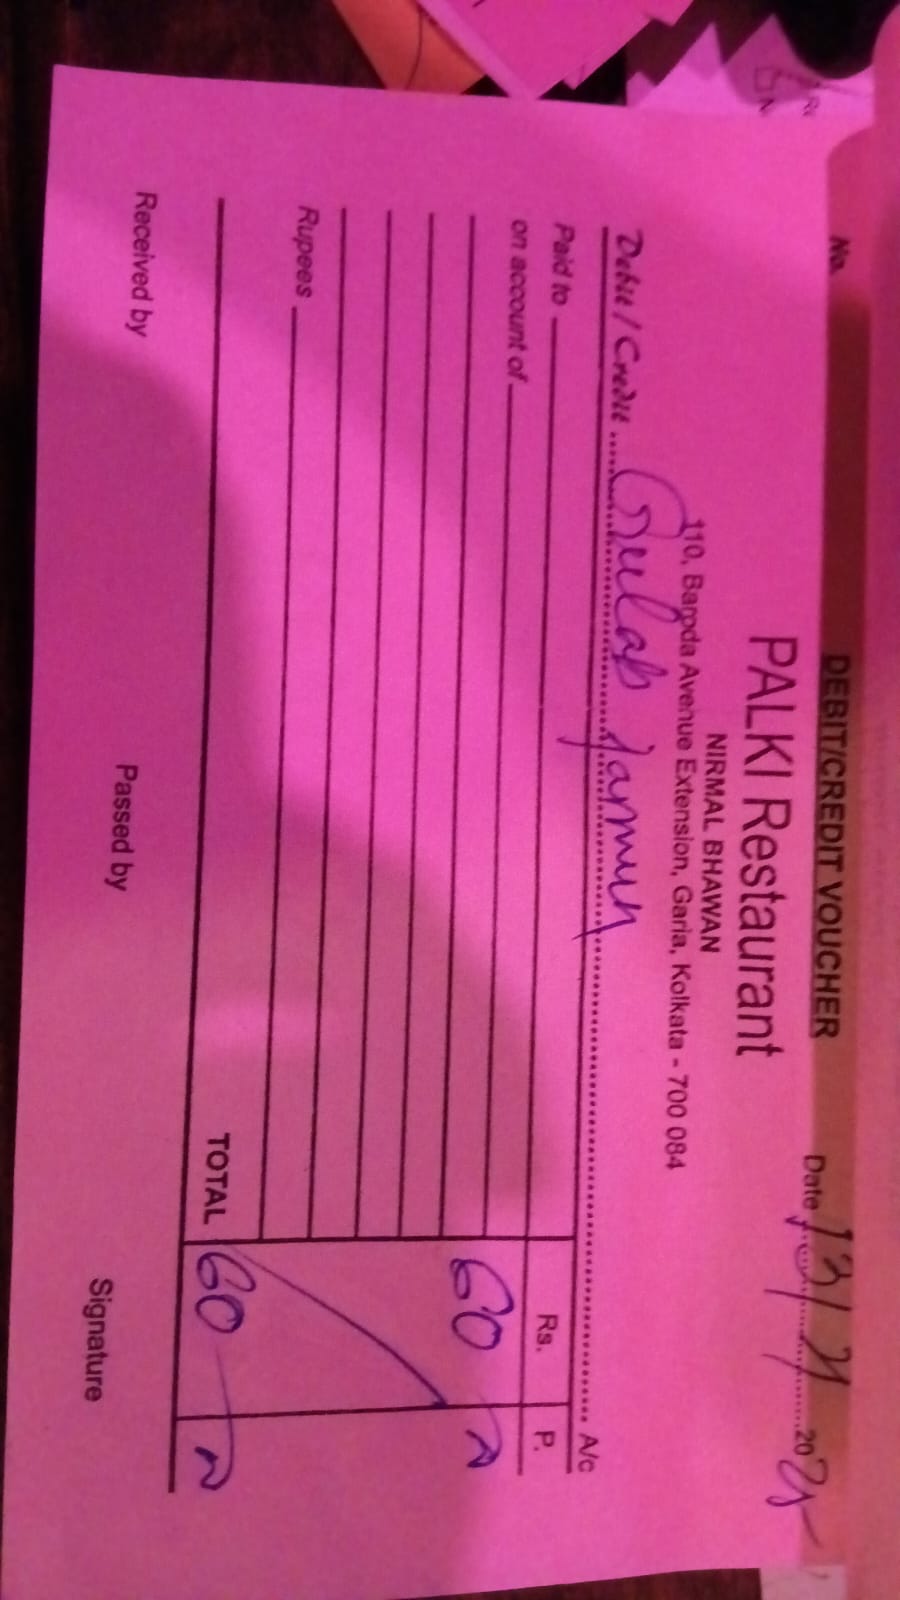 No.
DEBIT/CREDIT VOUCHER
PALKI Restaurant
NIRMAL BHAWAN
110, Baroda Avenue Extension, Garia, Kolkata - 700 084
Date 13/ 20
Debit / Credit Gulab Jarmun A/c
Paid to Rs. P.
on account of 60
Rupees
TOTAL 60
Received by Passed by Signature